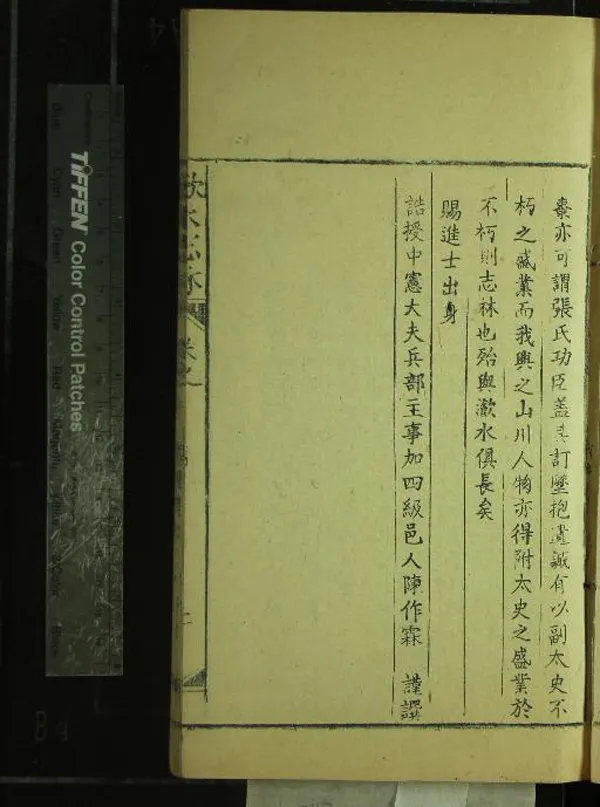 橐亦可謂張氏功臣蓋其訂墜抱遺誠有以副太史不
朽之盛業而我輿之山川人物亦得附太史之盛業於
不朽則志林也殆與漱水俱長矣
賜進士出身
誥授中憲大夫兵部主事加四級邑人陳作霖 謹譔
漱水志林
TIFFEN Color Control Patches
Blue
Cyan
Green
Yellow
Red
Magenta
White
Black